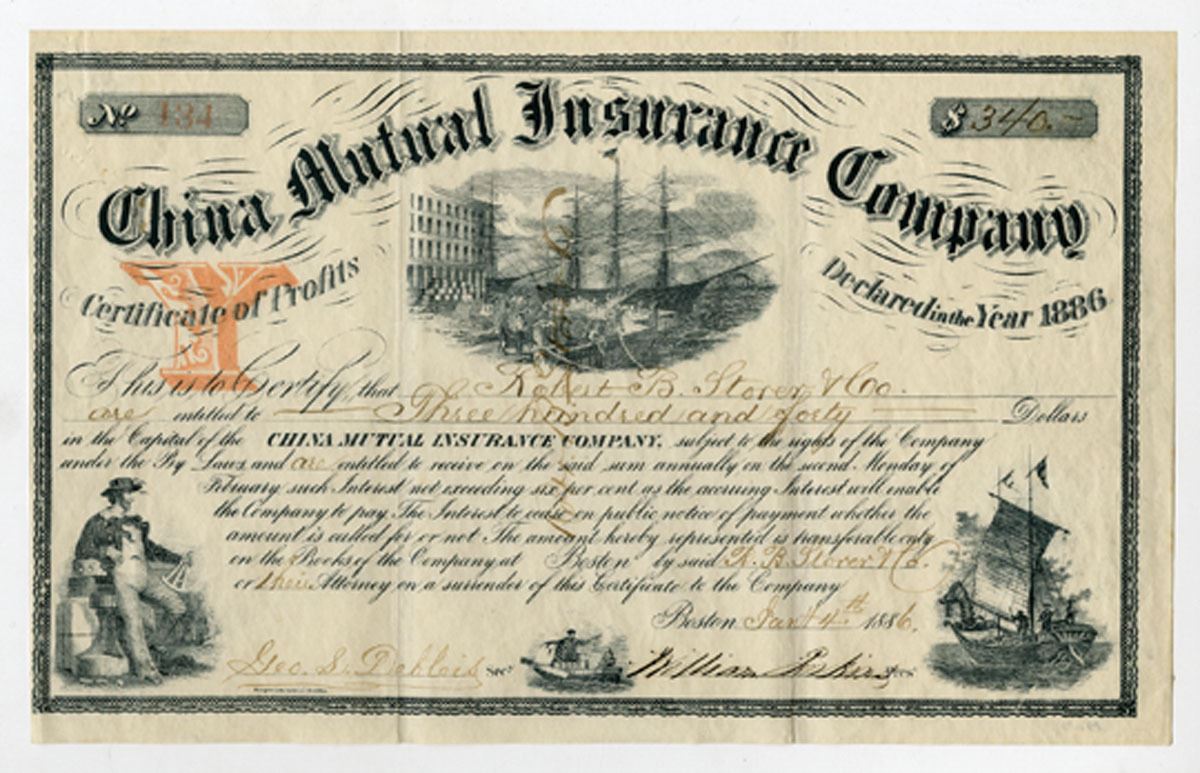 No 434
$ 340.-
China Mutual Insurance Company
Certificate of Profits
Declared in the Year 1886
This is to Certify, that Robert B. Storer & Co.
are entitled to Three hundred and forty Dollars
in the Capital of the CHINA MUTUAL INSURANCE COMPANY, subject to the rights of the Company
under the By Laws, and are entitled to receive on the said sum annually on the second Monday of
February such Interest not exceeding six per cent as the accruing Interest will enable
the Company to pay. The Interest to cease on public notice of payment whether the
amount is called for or not. The amount hereby represented is transferable only
on the Books of the Company at Boston by said R. B. Storer & Co.
or their Attorney on a surrender of this Certificate to the Company
Boston Jany 4th 1886.
Geo. S. Deblois Secy
William Perkins Pres